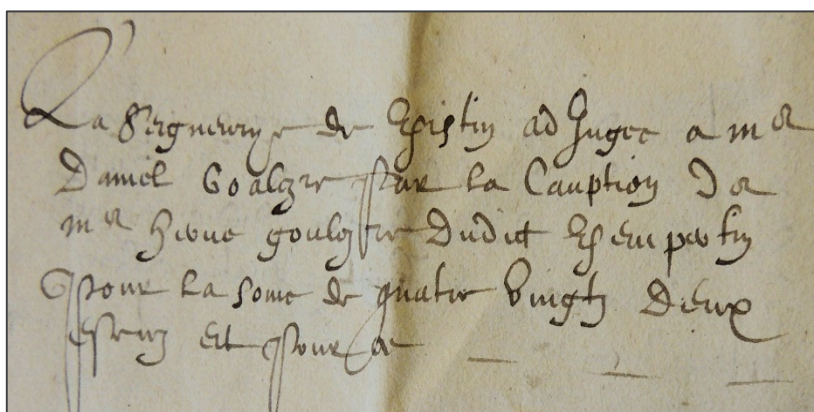 La Seigneurye de Kristin adJugee a me
Daniel Goalezre par la Cauption de
me Herve goulezre dudict
pour la some de quatre vingtz deux
escuz et pour ce